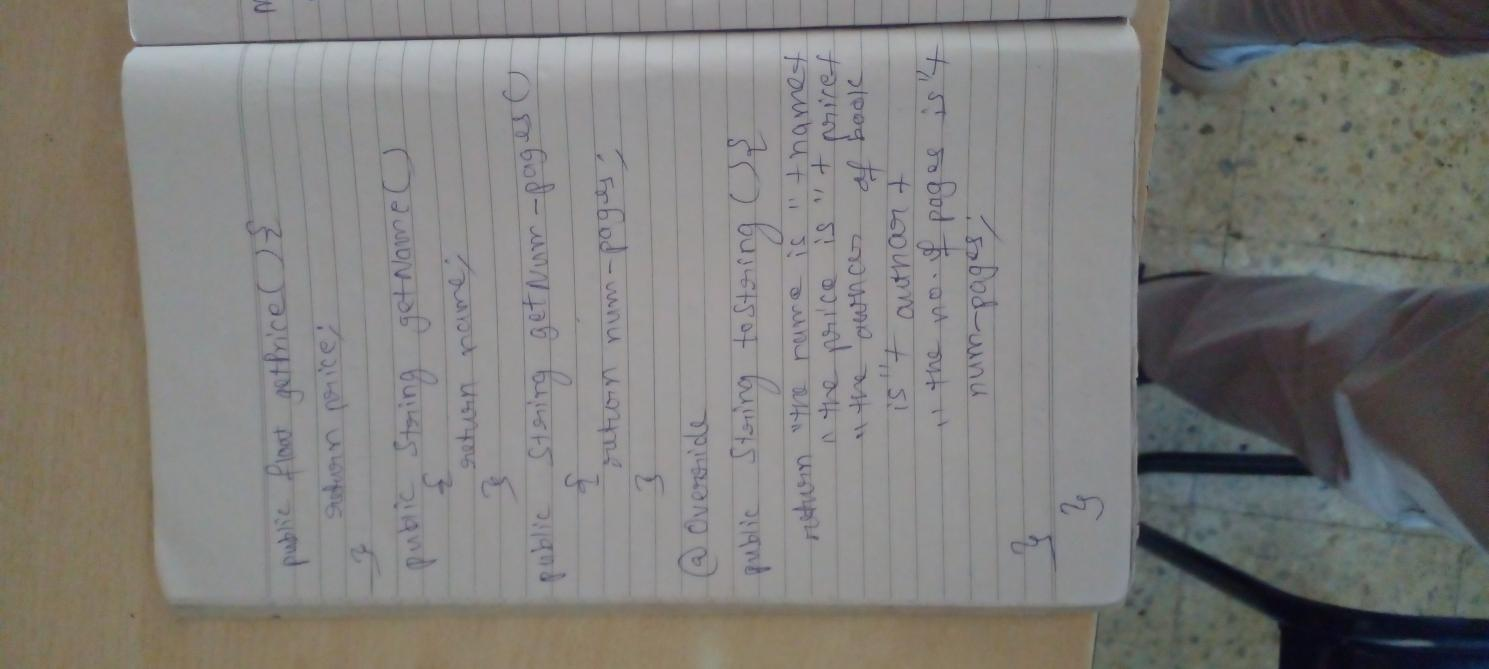 public float getPrice(){
return price;
}
public String getName()
{
return name;
}
public String getNum-pages()
{
return num-pages;
}
@Override
public String toString(){
return "the name is" + name+
"the price is" + price+
"the author of book
is"+ author+
"the no. of pages is"+
num-pages;
}
}